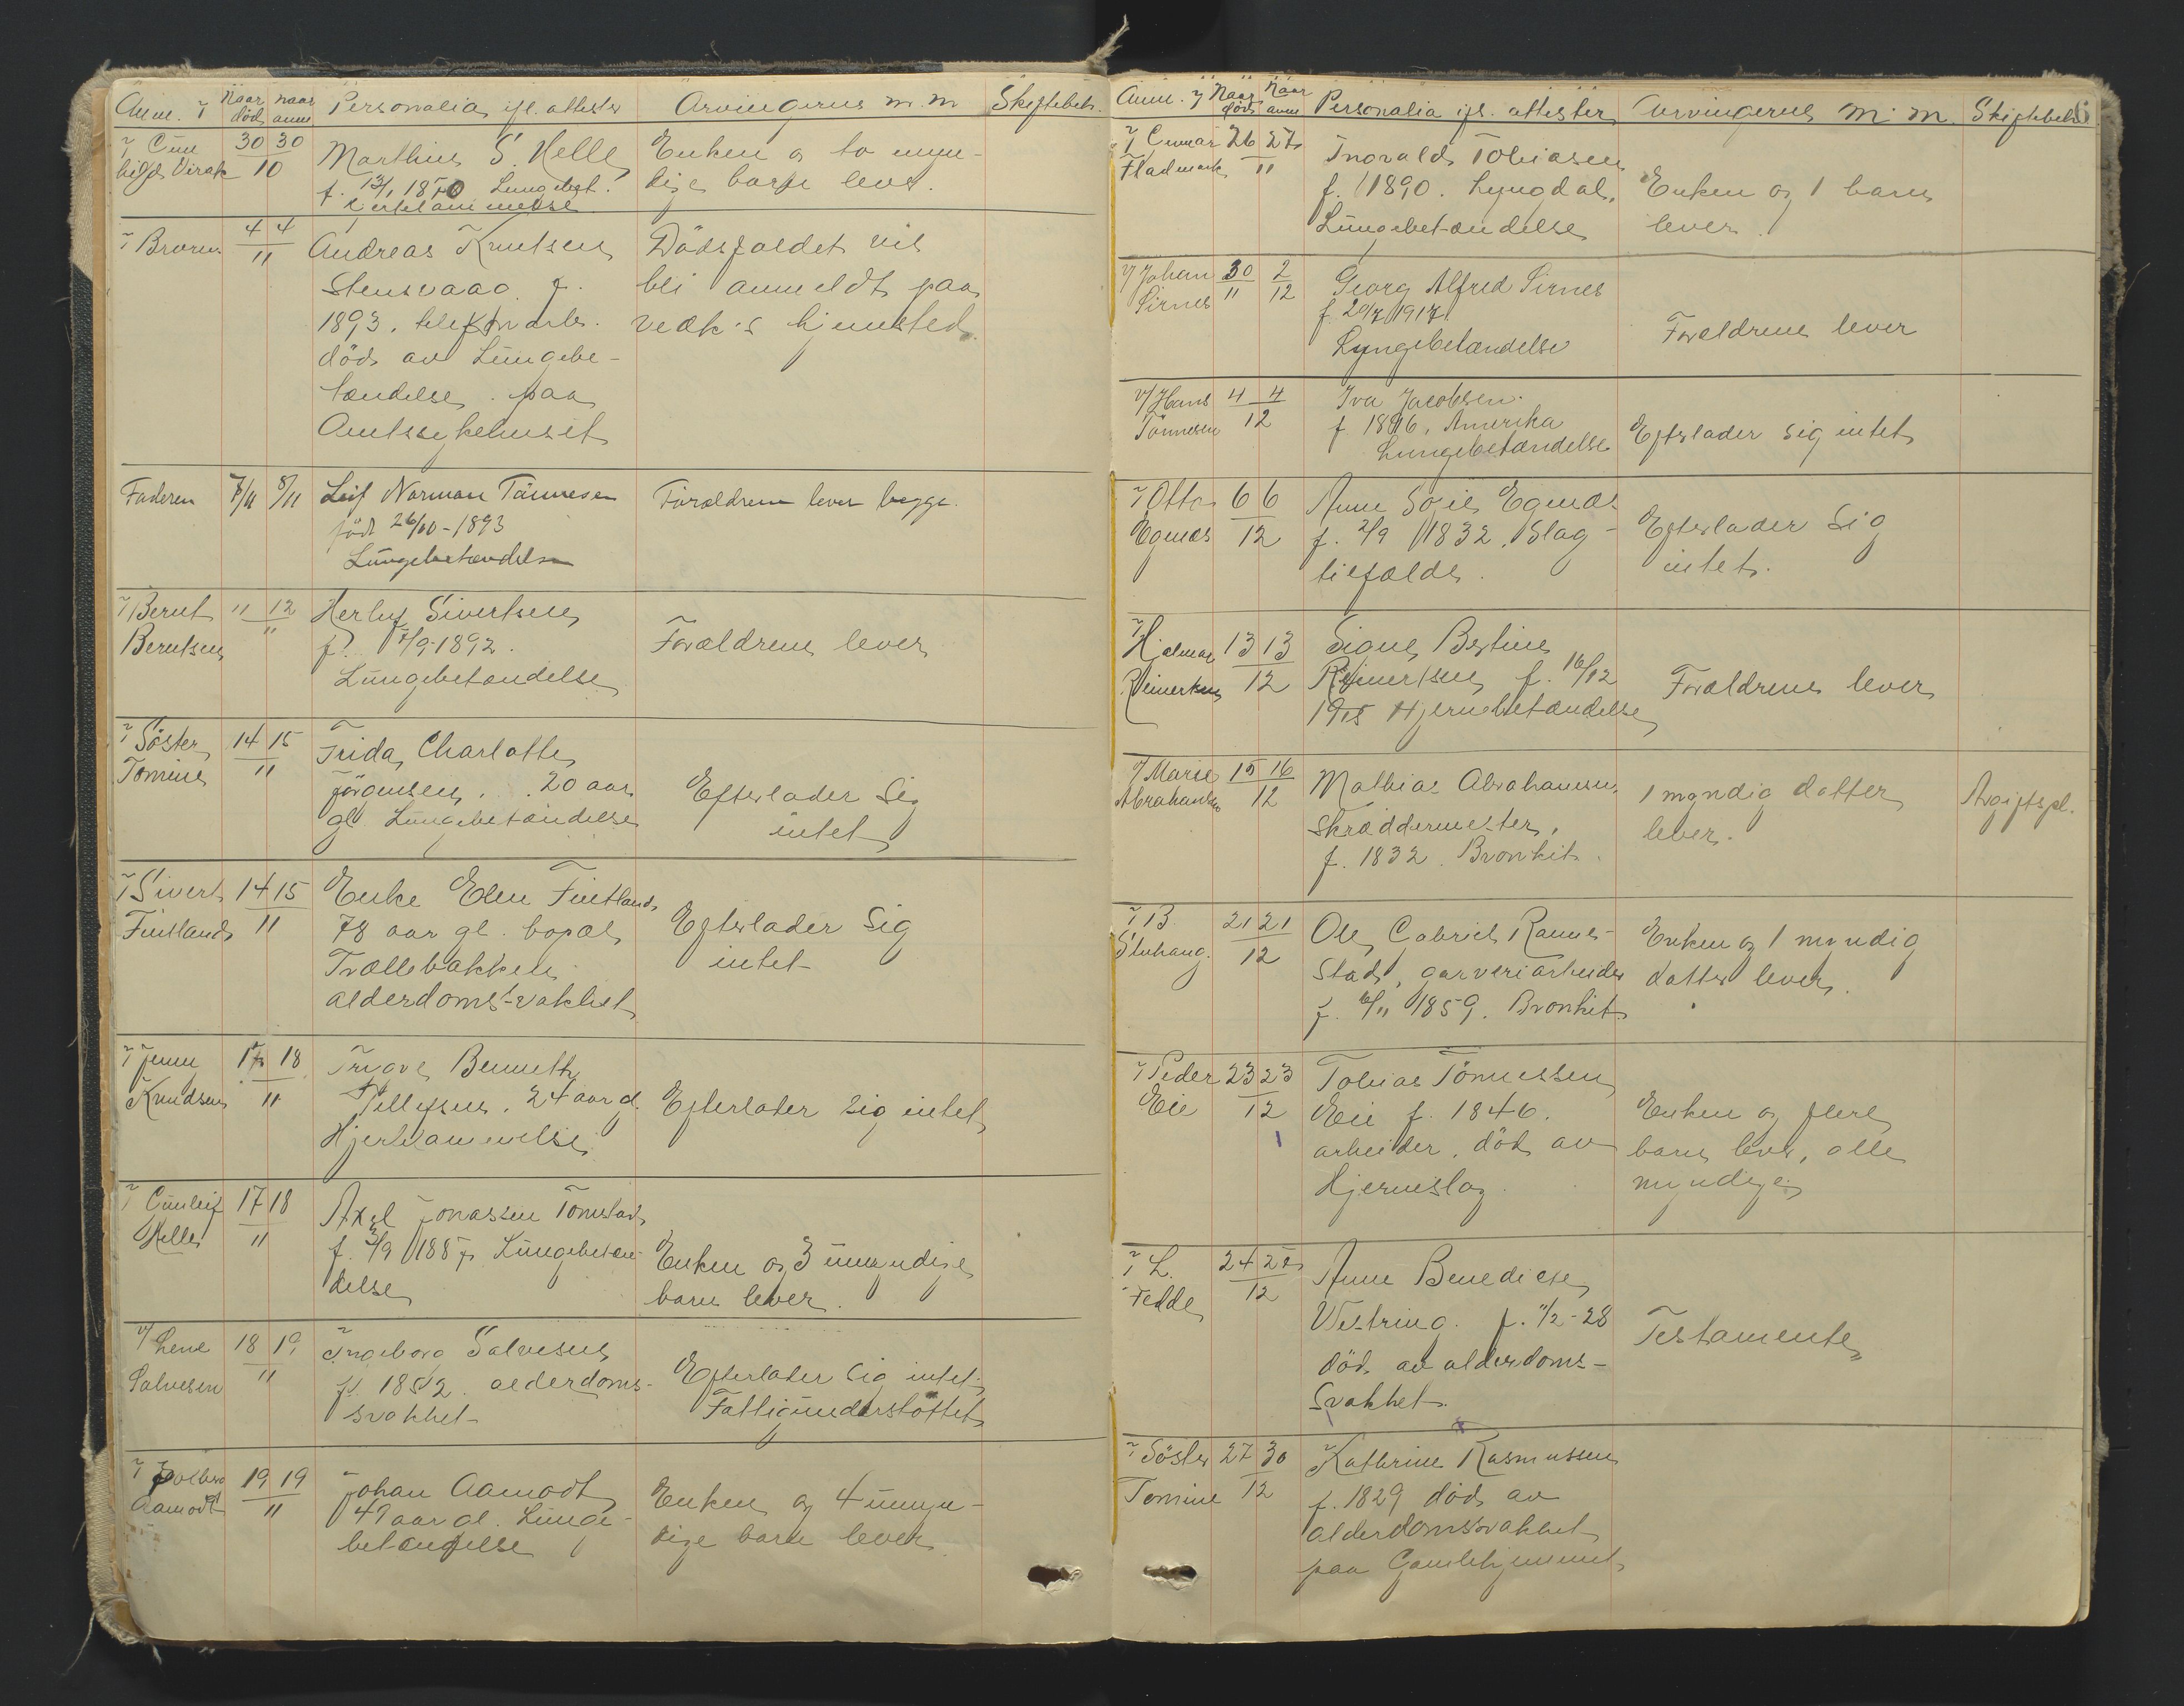 Anm. 7 Naar död naar anm Personalia ifl. attester Arvingerne m.m Skiftebeh.
30 30
10
Marthin S. Helle
f. 13/1 1870 Lungebet.
Hjertelammelse
Enken og to myn-
dige barn lever.
4 4
11
Andreas Knutsen
Stensvaag f.
1893, telefonarb.
död av Lungebe-
tændelse paa
Amtssykehuset
Dödsfaldet vil
bli anmeldt paa
vedk's hjemsted.
Faderen 7/11 8/11
Leif Norman Tönnesen
född 26/10-1893
Lungebetændelse
Foraldrene lever begge.
Bernt
Berntsen
11 12
11
Herluf Sivertsen
f. 7/9-1892.
Lungebetændelse
Forældrene lever
Söster
Tomine
14 15
11
Frida Charlotte
Jörgensen. 20 aar
gl. Lungebetændelse
Efterlader Sig
intet
Sivert
Fintland
14 15
11
Enke Elen Fintland
78 aar gl. bopæl
Trællebakken
alderdoms-svakhet
Efterlader Sig
intet
Jenn
Knudsen
17 18
11
Trygve Benneth
Tellefsen. 24 aar gl.
Hjertelammelse
Efterlader sig intet
Gunleif
Helle
17 18
11
Axel Jonassen Tomstad
f. 2/9 1887 Lungebetæn-
delse
Enken og 3 umyndige
barn lever.
Lene
Salvesen
18 19
11
Ingeborg Salvesen
f. 1852. alderdoms-
svakhet
Efterlater sig intet.
Fattigunderstöttet
Solberg
Aamodt
19 19
11
Johan Aamodt
49 aar gl. Lunge-
betændelse
Enken og 4 umyn-
dige barn lever
Anm. 7 Naar död Naar anm Personalia ifl. attester Arvingerne m.m. Skiftebeh.
Gunnar
Fladmark
26 27
11
Ingvald Tobiasen
f. 1890. Lyngdal.
Lungebetændelse
Enken og 1 barn
lever.
Johan
Sirnes
30 2
11 12
Georg Alfred Sirnes
f. 20/7 1917
Lungebetændelse
Forældrene lever
Hans
Tönnesen
4 4
12
Iva Jacobsen.
f. 1896, Amerika
Lungebetændelse
Efterlader sig intet
Otto
Egenæs
6 6
12
Anne Sofie Egenæs
f. 2/9 1832. Slag-
tilfælde.
Efterlader Sig
intet.
Hjalmar
Reinertsen
13 13
12
Signe Bertine
Reinertsen f. 16/12
1915 Hjernebetændelse
Forældrene lever
Marie
Abrahamsen
15 16
12
Mathias Abrahamsen,
Skræddermester,
f. 1832. Bronkit.
1 myndig datter
lever.
Avgiftspl.
B.
21 21
12
Ole Gabriel Rannes-
stad, garveriarbeider
f. 6/11 1859. Bronkit
Enken og 1 myndig
datter lever.
Peder
Eie
23 23
12
Tobias Tönnessen
Eie f. 1846.
arbeider, död av
Hjerneslag.
Enken og flere
barn lever, alle
myndige
L.
Fedde
24 28
12
Anne Benedicte
Westring. f. 1/2-28
död av alderdoms-
svakhet.
Testamente
Söster
Tomine
27 30
12
Kathrine Rasmussen
f. 1829 död av
alderdomssvakhet
paa Gamlehjemmet